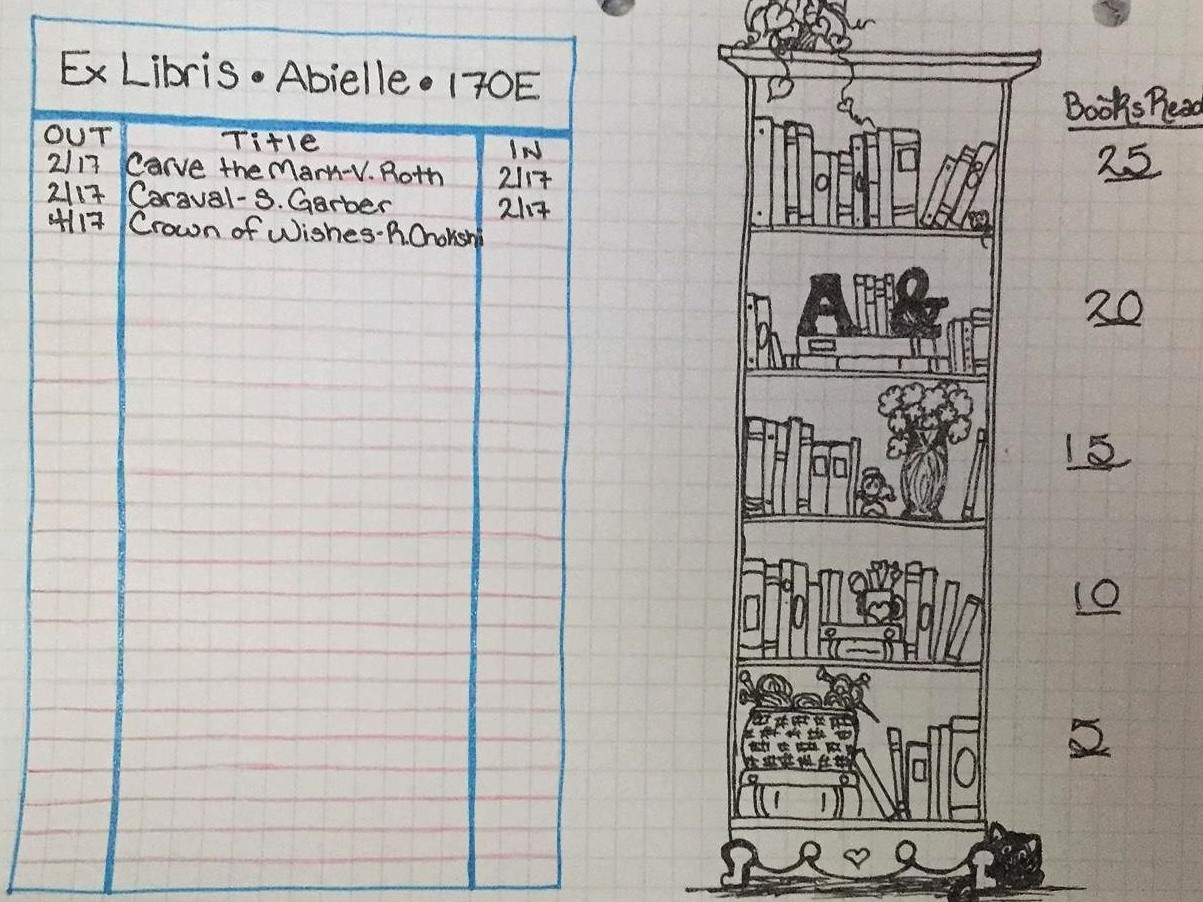 Ex Libris • Abielle • 170E
OUT Title IN
2/17 Carve the Mark-V. Roth 2/17
2/17 Caraval-S. Garber 2/17
4/17 Crown of Wishes-R. Chokshi
Books Read
25
20
15
10
5
A &